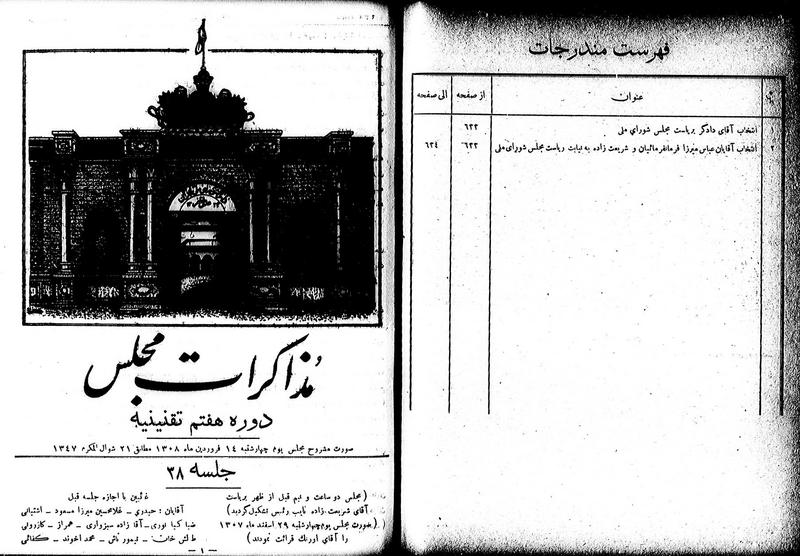 مذاکرات مجلس
دوره هفتم تقنینیه
صورت مشروح مجلس یوم چهارشنبه ۱۴ فروردین ماه ۱۳۰۸ مطابق ۲۱ شوال المکرم ۱۳۴۷
جلسه ۳۸
(مجلس دو ساعت و نیم قبل از ظهر بریاست
آقای شریعت زاده نایب رئیس تشکیل گردید)
(صورت مجلس یوم چهارشنبه ۲۹ اسفند ماه ۱۳۰۷
را آقای اورنگ قرائت نمودند)
غائبین با اجازه جلسه قبل
آقایان : حیدری ـ غلامحسین میرزا مسعود ـ آشتیانی
ضیا کیا نوری ـ آقا زاده سبزواری ـ همراز ـ کازرونی
طالش خان ـ تیمور تاش ـ محمد آخوند ـ کفائی
ـ ۱ ـ
فهرست مندرجات
عنوان از صفحه الی صفحه
۱ انتخاب آقای دادگر بریاست مجلس شورای ملی ۶۲۲
۲ انتخاب آقایان عباس میرزا فرمانفرمائیان و شریعت زاده به نیابت ریاست مجلس شورای ملی ۶۲۳ ۶۲۴